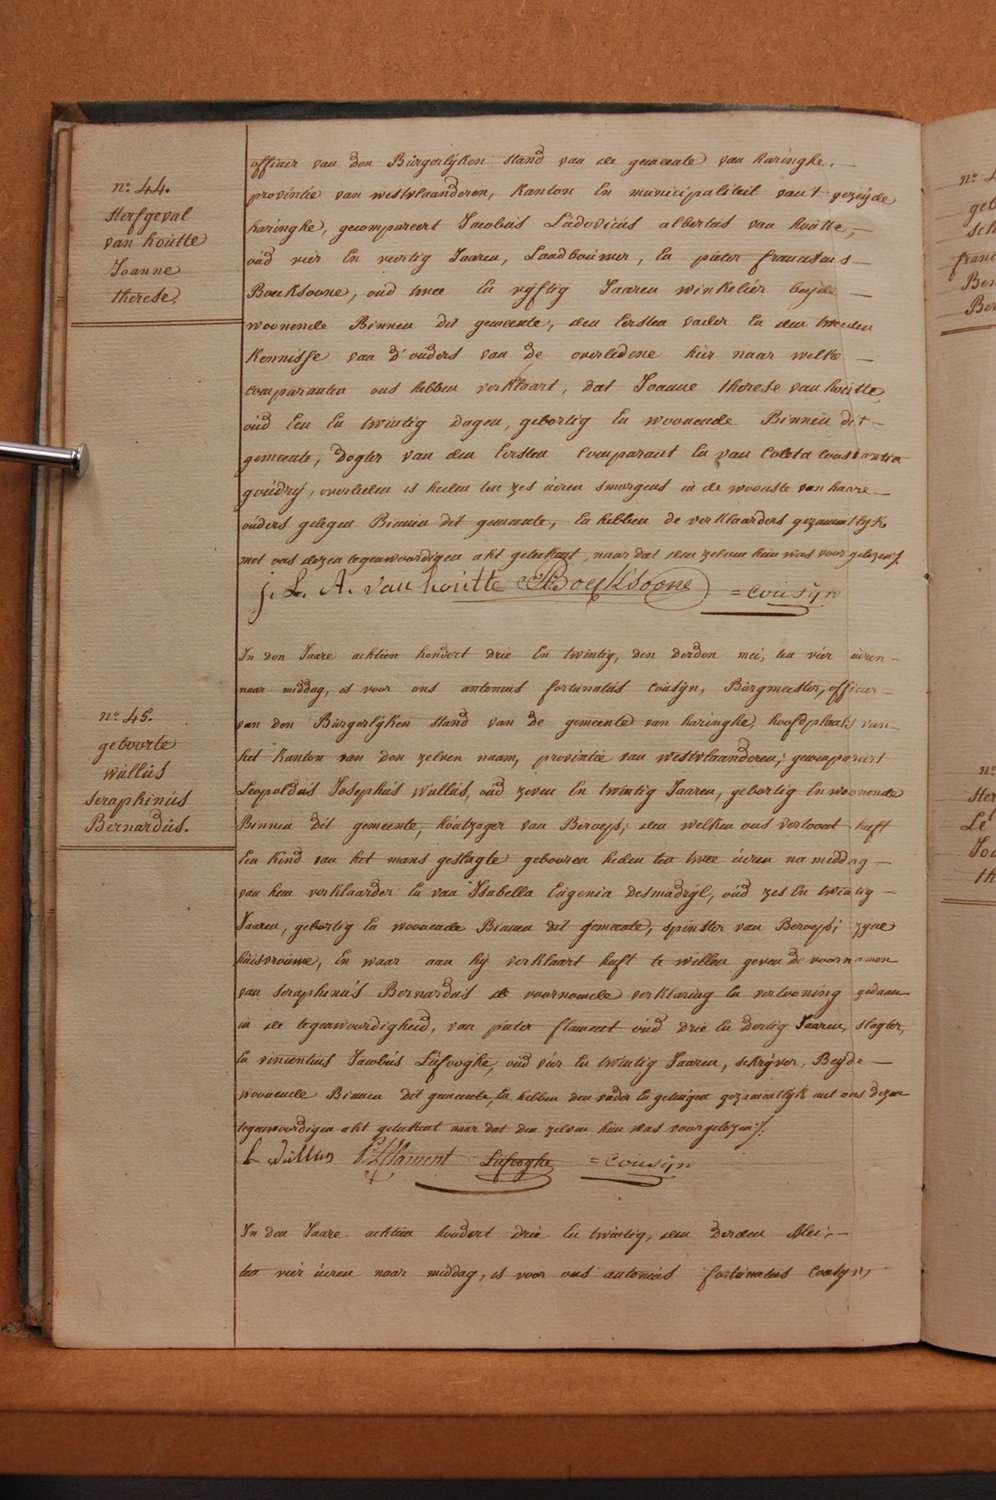 nº 44.
sterfgeval
van houtte
Joanne
therese.
officier van den Bürgerlijken stand van de gemeente van haringhe.
provintie van westvlaanderen, kanton En municipaliteit van't gezeijde
haringhe, gecompareert Jacobüs Lüdovicüs albertüs van hoütte,
oüd vier En veertig Jaaren, Landboüwer, En pieter franciscus
Boeksoone, oud twee En vyftig Jaaren winkelier beijde
woonende Binnen dit gemeente, den Eersten vader En den tweeden
kennisse van d'ouders van de overledene hier naar welke
comparanten ons hebben verklaart, dat Joanne therese van houtte
oüd Een En twintig dagen, gebortig En woonende Binnen dit
gemeente, dogter van den Eersten comparant En van Coleta constantia
goüdrij, overleden is heden ten zes üeren smorgens in de woonste van haere
oüders gelegen Binnen dit gemeente, En hebben de verklaarders gezamentlyk
met ons dezen tegenwoordigen akt geteekent, naar dat den zelven hun was voorgelezen ./.
j. L. A. van houtte Boeyksoone = cousijn
nº 45.
geboorte
wüllüs
seraphinüs
Bernardüs.
In den Jaare achtien hondert drie En twintig, den derden mei, ten vier üeren
naar middag, is voor ons antonius fortünatüs coüsijn, Bürgmeester, officier
van den Bürgerlijken stand van de gemeente van haringhe hoofdplaets van
het kanton van den zelven naam, provintie van westvlaanderen; gecompareert
Leopoldüs Josephüs wüllüs, oüd zeven En twintig Jaaren, gebortig En woonende
Binnen dit gemeente, hoützager van Beroep; den welken ons vertoont heeft
Een kind van het mans geslagte gebooren heden ten twee üeren namiddag
van hem verklaarder En van Isabella Eügenia Desmadrijl, oüd zes En twintig
Jaaren, gebortig En woonende Binnen dit gemeente, spinster van Beroep; zyne
hüisvroüwe, En waar aan hij verklaart heeft te willen geven de voornamen
van seraphinüs Bernardüs de voornoemde verklaring En vertooning gedaan
in de tegenwoordigheid, van pieter flament oüd drie En dertig Jaaren, slagter,
En vincentiüs Jacobüs Lüfooghe, oüd vier En twintig Jaaren, schrijver, Beijde
woonende Binnen dit gemeente, En hebben den vader En getuigen gezamentlyk met ons dezen
tegenwoordigen akt geteekent naar dat den zelven hun was voorgelezen ./.
L wüllus flament Lüfooghe = cousijn
In den Jaare achtien hondert drie En twintig, den derden Mei,
ten vier üeren naar middag, is voor ons antonius fortünatus cousijn,